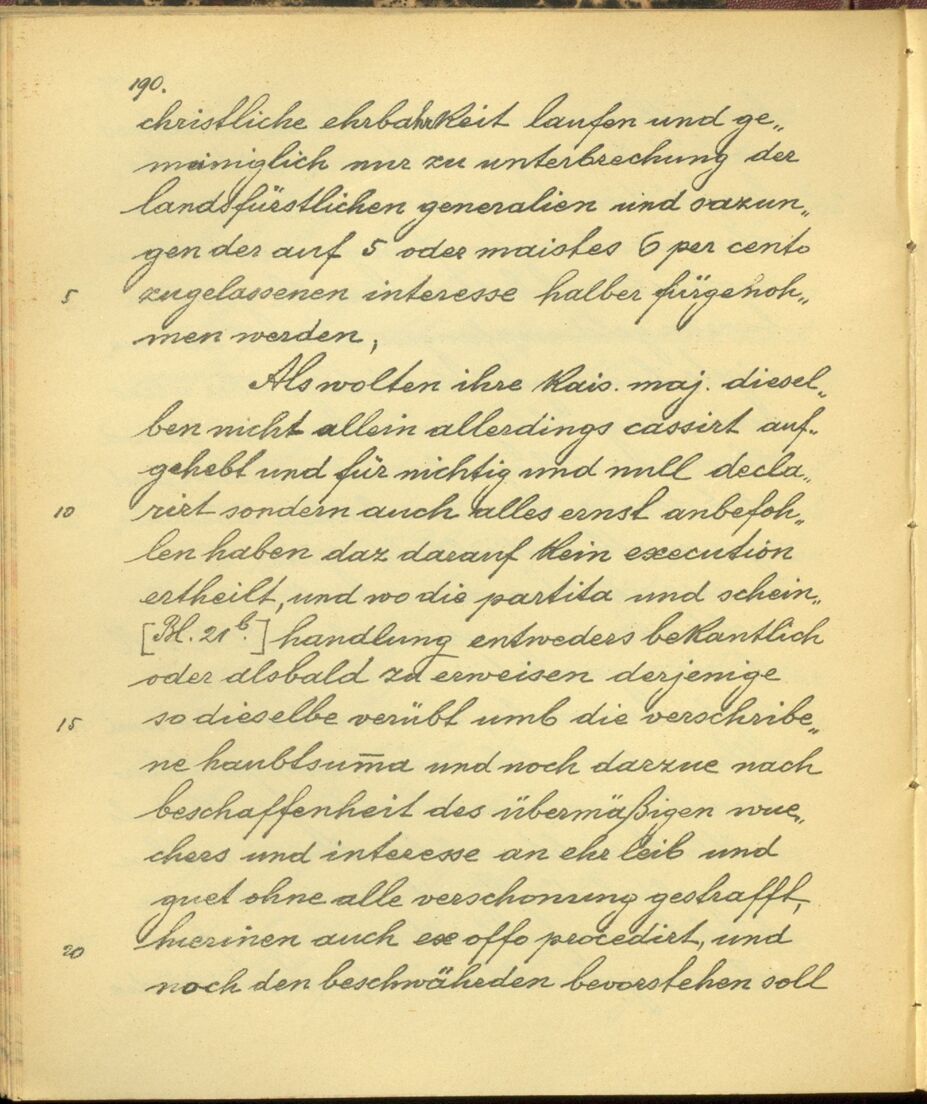 190.
christliche ehrbahrkeit laufen und ge„
meiniglich nur zu unterbrechung der
landsfürstlichen generalien und sazun„
gen der auf 5 oder maistes 6 per cento
5 zugelassenen interesse halber fürgenoh„
men werden,
Als wolten ihre kais. maj. diesel„
ben nicht allein allerdings cassirt auf„
gehebt und für nichtig und null decla„
10 rirt sondern auch alles ernst anbefoh„
len haben daz darauf kein execution
ertheilt, und wo die partita und schein„
[Bl. 21b.] handlung entweders bekantlich
oder alsbald zu erweisen derjenige
15 so dieselbe verübt umb die verschribe„
ne haubtsum̅a und noch darzue nach
beschaffenheit des übermäßigen wue„
chers und interesse an ehr leib und
guet ohne alle verschonung gestrafft,
20 hierinen auch ex offo procedirt, und
noch den beschwäheden bevorstehen soll